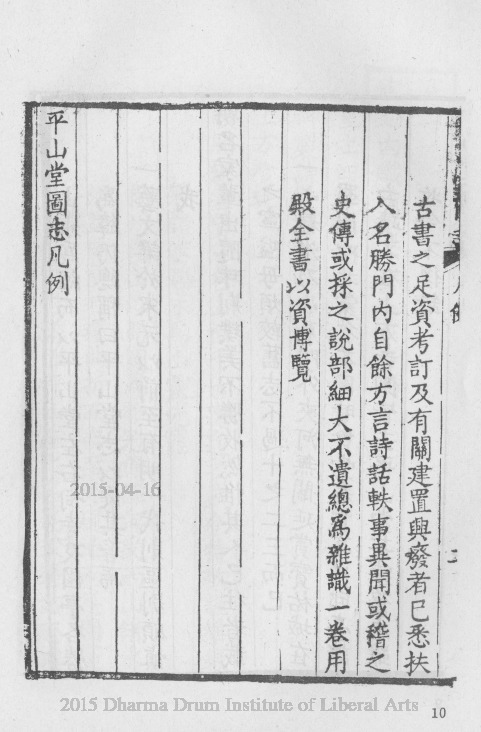 古書之足資考訂及有關建置興廢者已悉扶
入名勝門內自餘方言詩話軼事異聞或稽之
史傳或採之說部細大不遺總爲雜識一卷用
殿全書以資博覽
平山堂圖志凡例
2015-04-16
2015 Dharma Drum Institute of Liberal Arts
10